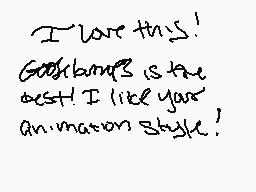 I love this!
Goosebumps is the
best! I like your
animation style!